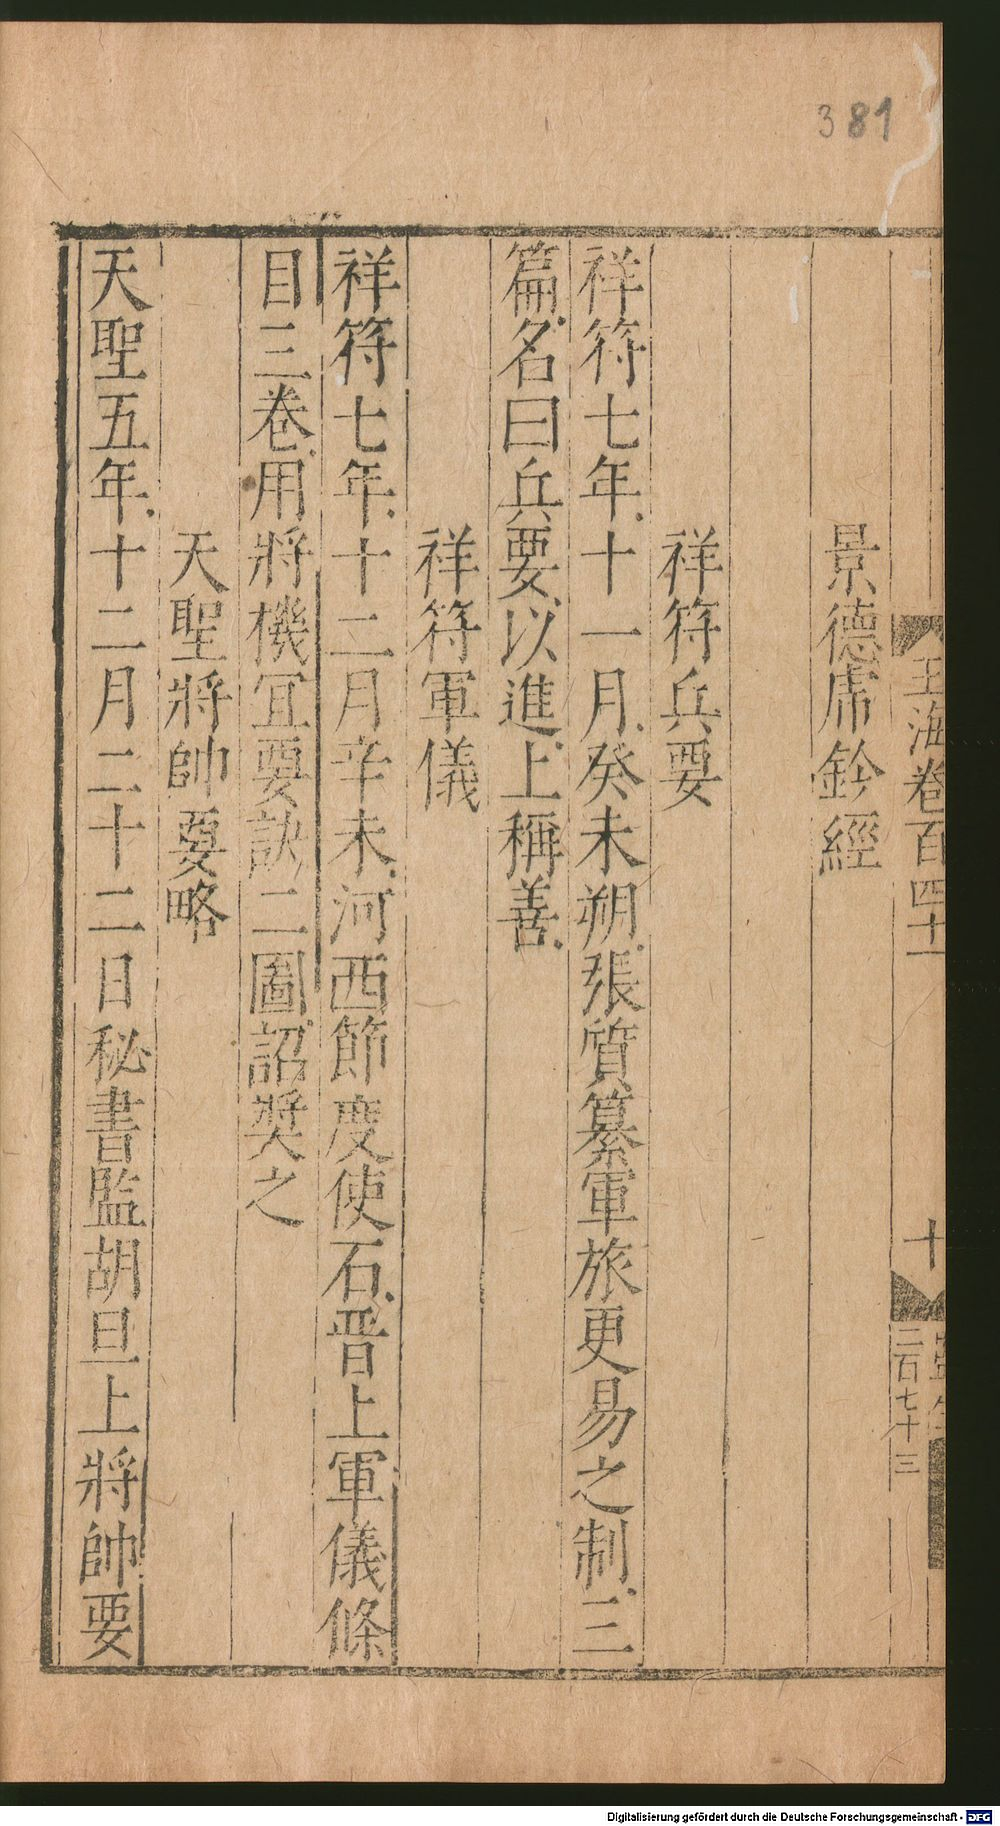 381
玉海卷百四十一
十
三百七十三
景德虎鈐經
祥符兵要
祥符七年十一月癸未朔張質纂軍旅更易之制三
篇名曰兵要以進上稱善
祥符軍儀
祥符七年十二月辛未河西節度使石晋上軍儀條
目三卷用將機宜要訣二圖詔奬之
天聖將帥要略
天聖五年十二月二十二日秘書監胡旦上將帥要
Digitalisierung gefördert durch die Deutsche Forschungsgemeinschaft - DFG